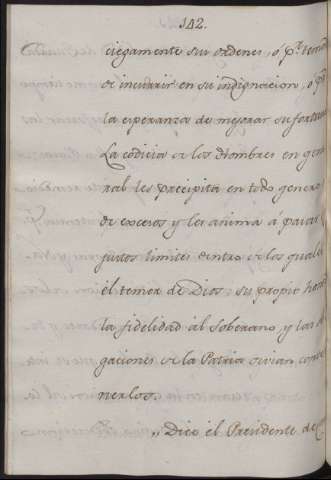 142.
ciegamente sus ordenes, ó pr. temor
de incurrir en su indignacion, ó pr.
la esperanza de mejorar su fortuna.
La codicia de los Hombres en gene
ral les precipita en todo genero
de excesos y les anima á pasar
justos limites dentro de los quales
el temor de Dios, su propio honor
la fidelidad al Soberano, y las
gaciones de la Patria
nerlos.
,, Dice el Presidente de